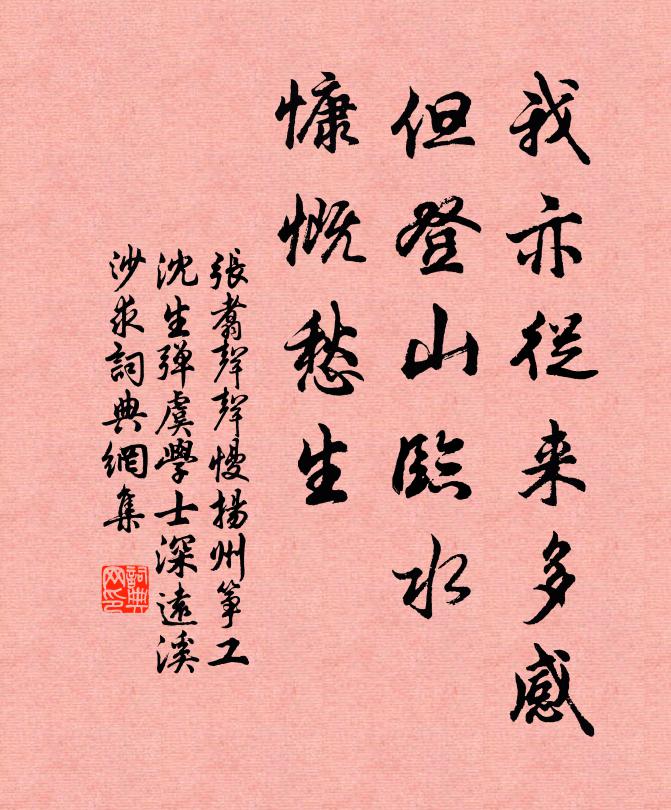 我亦從来多感
但登山臨水
慷慨愁生
張翥聲聲慢揚州箏工
沈生弹虞學士深遠溪
沙求詞典網集
詞典網印